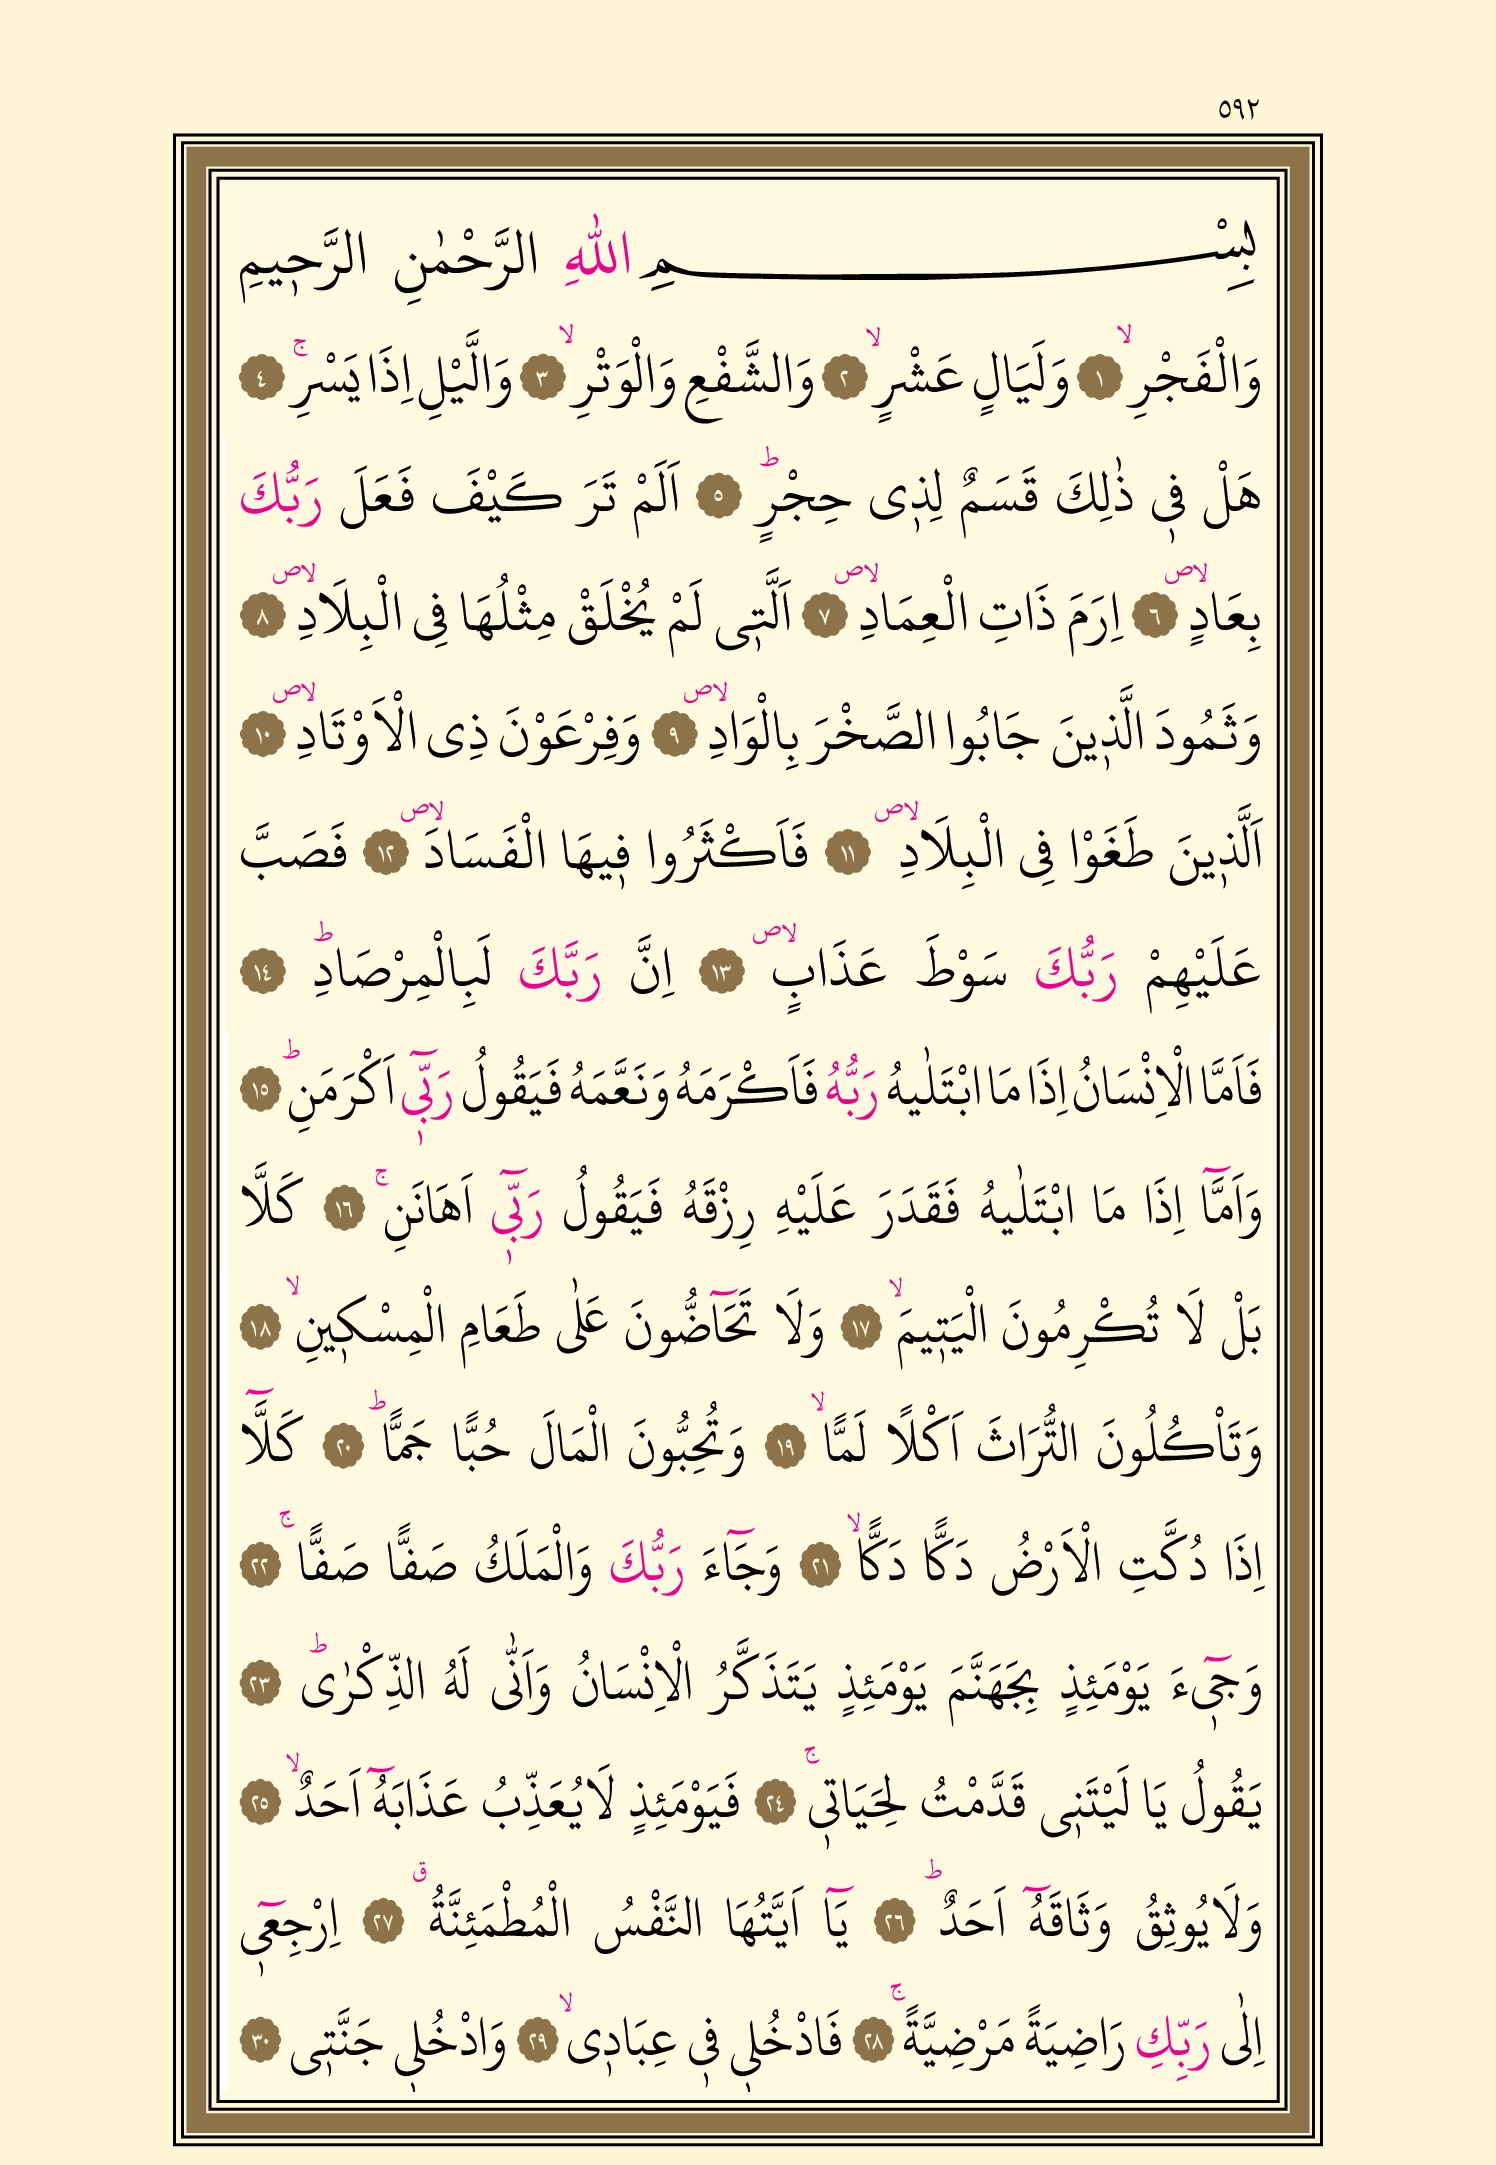 ٥٩٢
بِسْمِ اللّٰهِ الرَّحْمٰنِ الرَّح۪يمِ
وَالْفَجْرِۙ ﴿١﴾ وَلَيَالٍ عَشْرٍۙ ﴿٢﴾ وَالشَّفْعِ وَالْوَتْرِۙ ﴿٣﴾ وَالَّيْلِ اِذَا يَسْرِۚ ﴿٤﴾
هَلْ ف۪ي ذٰلِكَ قَسَمٌ لِذ۪ى حِجْرٍۜ ﴿٥﴾ اَلَمْ تَرَ كَيْفَ فَعَلَ رَبُّكَ
بِعَادٍۙۖ ﴿٦﴾ اِرَمَ ذَاتِ الْعِمَادِۙۖ ﴿٧﴾ اَلَّت۪ى لَمْ يُخْلَقْ مِثْلُهَا فِى الْبِلَادِۙۖ ﴿٨﴾
وَثَمُودَ الَّذ۪ينَ جَابُوا الصَّخْرَ بِالْوَادِۙۖ ﴿٩﴾ وَفِرْعَوْنَ ذِى الْاَوْتَادِۙۖ ﴿١٠﴾
اَلَّذ۪ينَ طَغَوْا فِى الْبِلَادِۙۖ ﴿١١﴾ فَاَكْثَرُوا ف۪يهَا الْفَسَادَۙۖ ﴿١٢﴾ فَصَبَّ
عَلَيْهِمْ رَبُّكَ سَوْطَ عَذَابٍۙۖ ﴿١٣﴾ اِنَّ رَبَّكَ لَبِالْمِرْصَادِۜ ﴿١٤﴾
فَاَمَّا الْاِنْسَانُ اِذَا مَا ابْتَلٰيهُ رَبُّهُ فَاَكْرَمَهُ وَنَعَّمَهُ فَيَقُولُ رَبّ۪ٓى اَكْرَمَنِۜ ﴿١٥﴾
وَاَمَّٓا اِذَا مَا ابْتَلٰيهُ فَقَدَرَ عَلَيْهِ رِزْقَهُ فَيَقُولُ رَبّ۪ٓى اَهَانَنِۚ ﴿١٦﴾ كَلَّا
بَلْ لَا تُكْرِمُونَ الْيَت۪يمَۙ ﴿١٧﴾ وَلَا تَحَٓاضُّونَ عَلٰى طَعَامِ الْمِسْك۪ينِۙ ﴿١٨﴾
وَتَاْكُلُونَ التُّرَاثَ اَكْلًا لَمًّاۙ ﴿١٩﴾ وَتُحِبُّونَ الْمَالَ حُبًّا جَمًّاۜ ﴿٢٠﴾ كَلَّٓا
اِذَا دُكَّتِ الْاَرْضُ دَكًّا دَكًّاۙ ﴿٢١﴾ وَجَٓاءَ رَبُّكَ وَالْمَلَكُ صَفًّا صَفًّاۚ ﴿٢٢﴾
وَج۪ٓىءَ يَوْمَئِذٍ بِجَهَنَّمَ يَوْمَئِذٍ يَتَذَكَّرُ الْاِنْسَانُ وَاَنّٰى لَهُ الذِّكْرٰىۜ ﴿٢٣﴾
يَقُولُ يَا لَيْتَن۪ى قَدَّمْتُ لِحَيَات۪ىۚ ﴿٢٤﴾ فَيَوْمَئِذٍ لَا يُعَذِّبُ عَذَابَهُٓ اَحَدٌۙ ﴿٢٥﴾
وَلَا يُوثِقُ وَثَاقَهُٓ اَحَدٌۜ ﴿٢٦﴾ يَٓا اَيَّتُهَا النَّفْسُ الْمُطْمَئِنَّةُۗ ﴿٢٧﴾ اِرْجِع۪ٓى
اِلٰى رَبِّكِ رَاضِيَةً مَرْضِيَّةًۚ ﴿٢٨﴾ فَادْخُل۪ى ف۪ى عِبَاد۪ىۙ ﴿٢٩﴾ وَادْخُل۪ى جَنَّت۪ى ﴿٣٠﴾